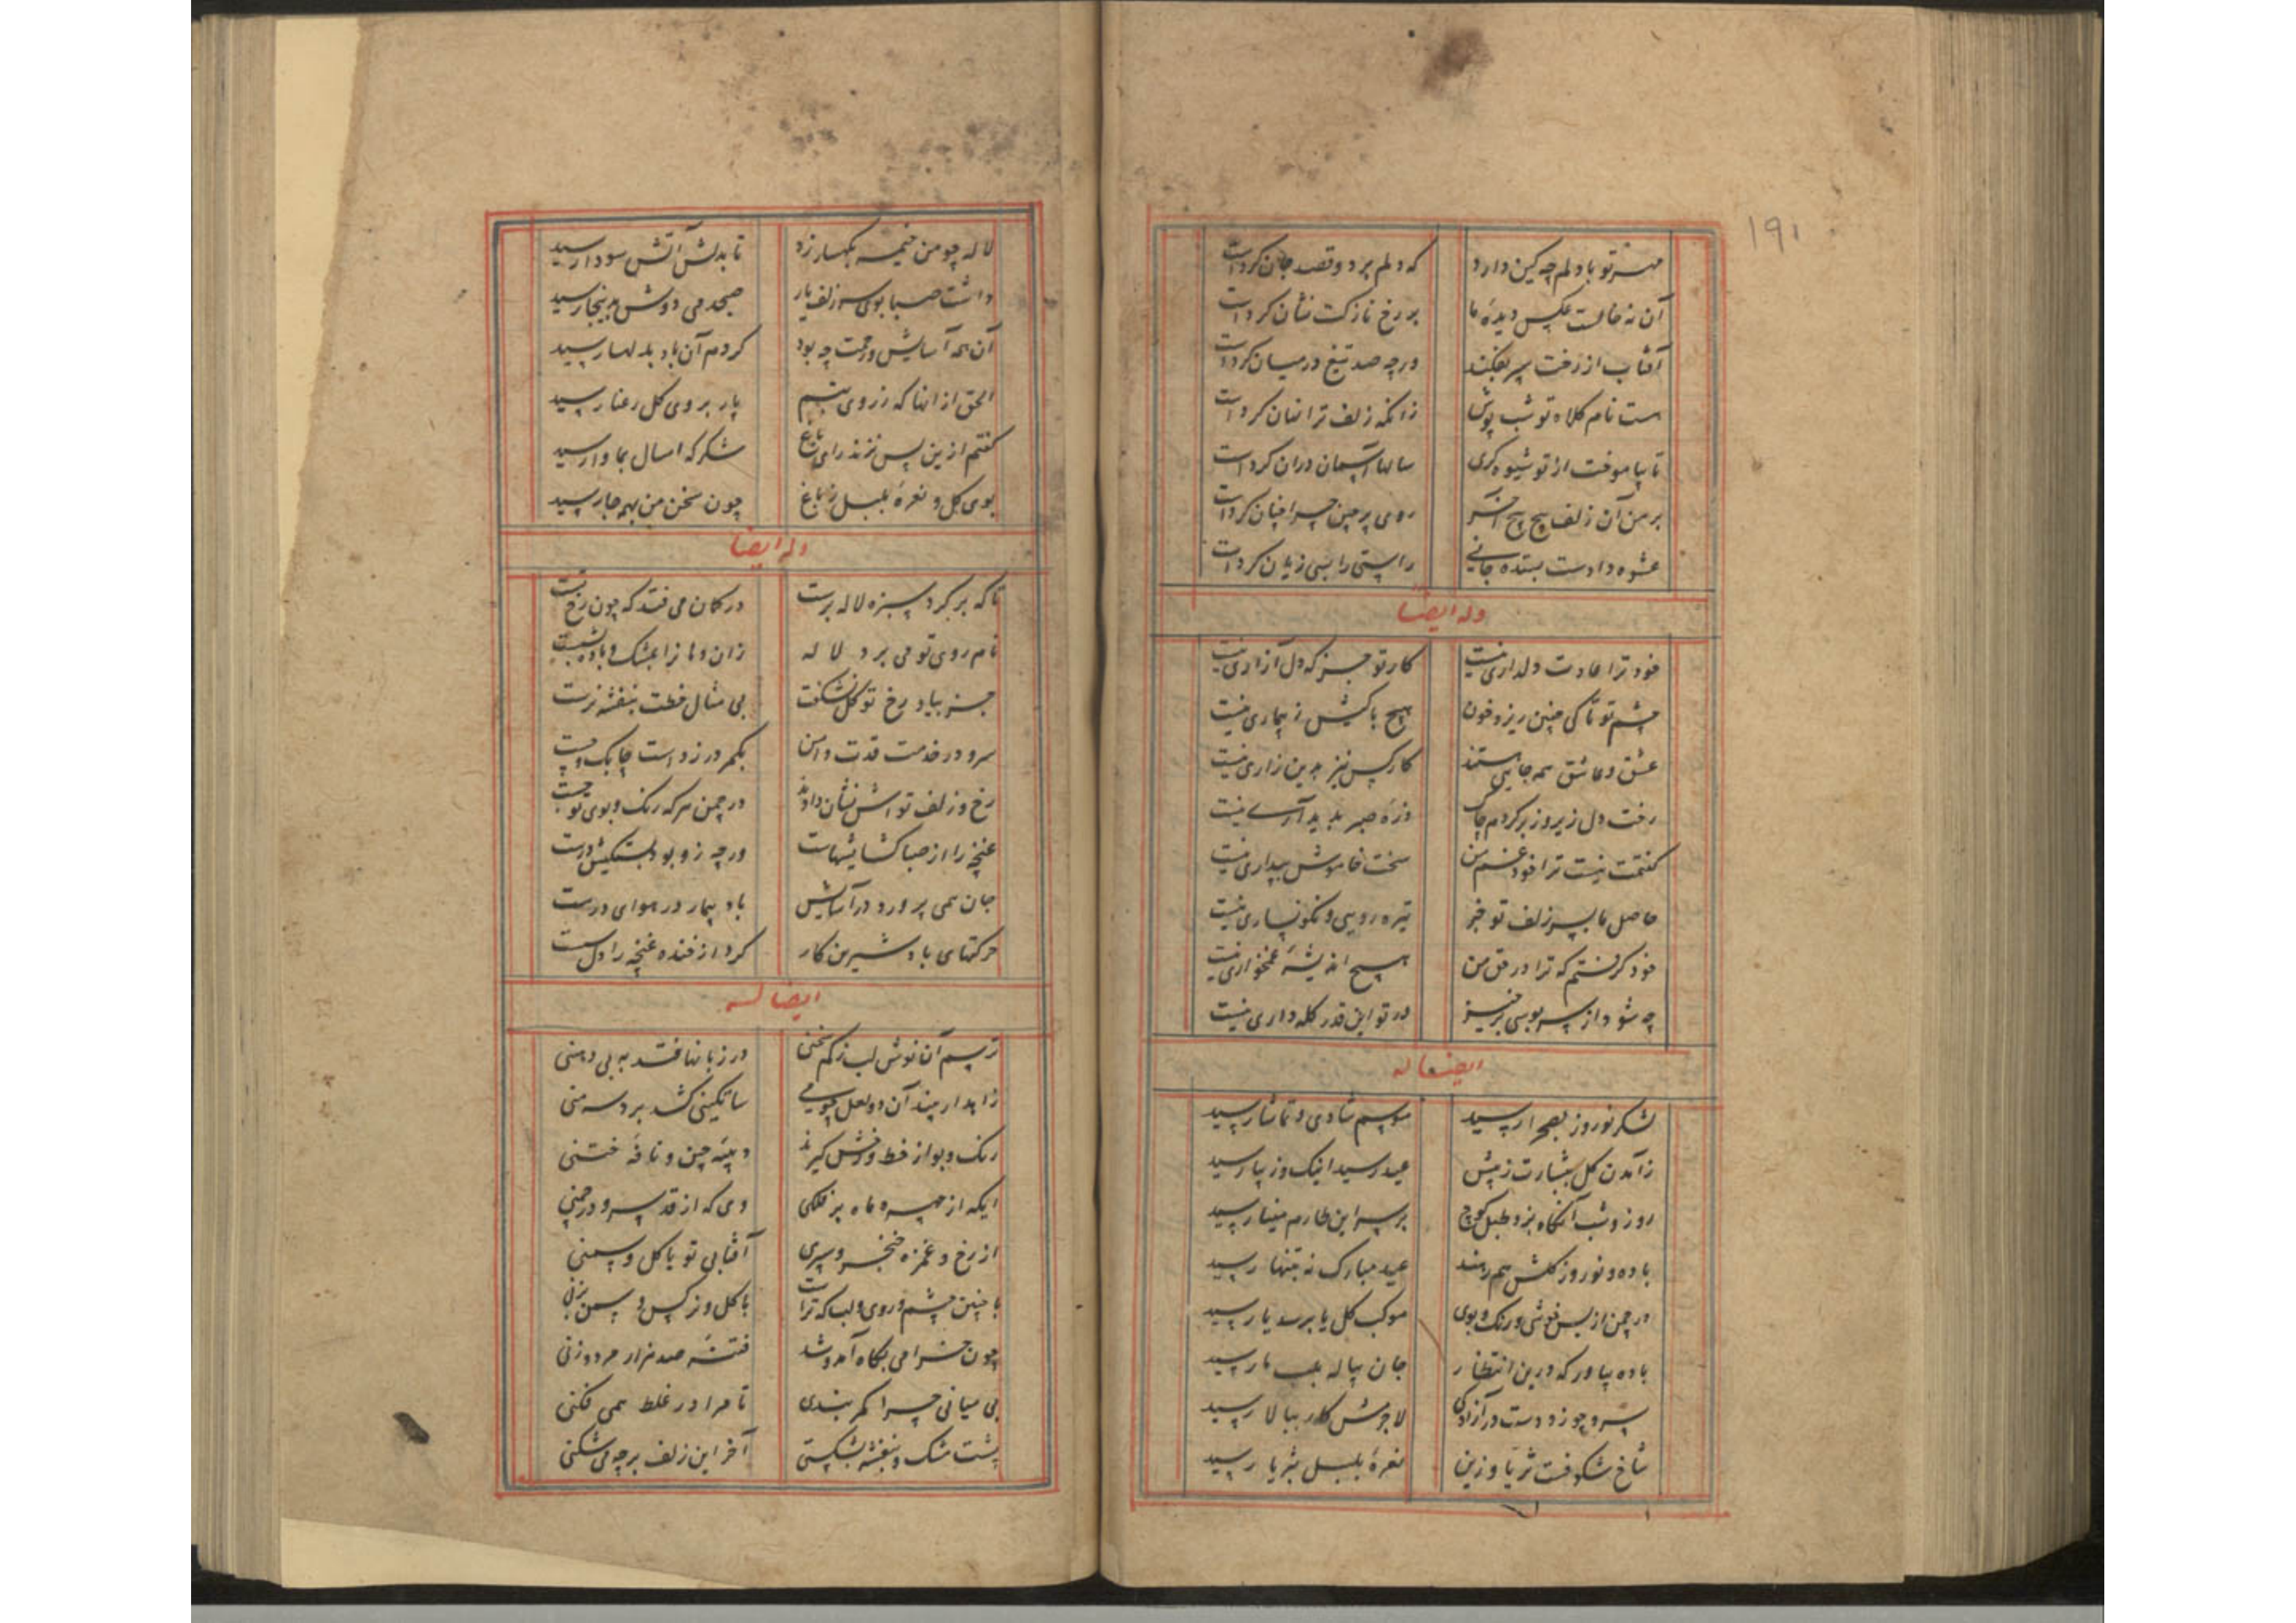 ۱۹۱
مهر تو با دلم چه کین دارد که دلم برد و قصد جان کردست
آن نه خالست عکس دیدهٔ ما بر رخ نازکت نشان کردست
آفتاب از رخت سپر بفکند ورچه صد تیغ در میان کردست
هست نام کلاه تو شب پوش زانکه زلف ترا نهان کردست
تا بیاموخت از تو شیوه کری سالها آسمان دران کردست
بر من آن زلف پیچ پیچ آخر روی پرچین چرا چنان کردست
عشوه دادست بسته جانی راستی را بسی زیان کردست
وله ایضا
خود ترا عادت دلداری نیست کار تو جز که دل آزاری نیست
چشم تو تا کی چنین ریزد خون هیچ باکیش ز بیماری نیست
عشق و عاشق همه جایی هستند کار کس نیز بدین زاری نیست
رفت دل زیر و زبر کردم چاک ذرهٔ صبر پدید آرے نیست
کفتمت نیست ترا خود غم من سخت خاموش بیداری نیست
حاصل ما بسر زلف تو جز تیره رویی و نکونساری نیست
خود کرفتم که ترا در حق من هیچ اندیشهٔ غمخواری نیست
چه شود از سر بوسی برخیز در تو این قدر کله داری نیست
ایضا له
لشکر نوروز بصحرا رسید موسم شادی و تماشا رسید
ز آمدن کل بشارت ز پیش عید رسید اینک و زیبا رسید
روز و شب آنکاه بزد طبل کوچ بر سر این طارم مینا رسید
باده و نوروز کلش همرهند عید مبارک نه بتنها رسید
در چمن از بس خوشی و رنک و بوی موکب کل یا برسد یا رسید
باده بیاور که درین انتظار جان پیاله بلب ما رسید
سرو چو زد دست در آزادکی لاجرمش کار ببالا رسید
شاخ شکوفست ثریا و زین نعرهٔ بلبل بثریا رسید
لاله چو من خیمه بکهسار زد تا بدلش آتش سودا رسید
داشت صبا بوی سر زلف یار صبحدمی دوش بر اینجا رسید
آن همه آسایش و رحمت چه بود کردم آن باد بدلها رسید
الحق از انها که ز روی بتم یار بروی کل رعنا رسید
کفتم ازین پس نزند رای باغ شکر که امسال بما وا رسید
بوی کل و نعرهٔ بلبل ز باغ چون سخن من بهمه جا رسید
وله ایضا
تا که بر کرد سبزه لاله برست در کمان می فتد که چون رخ تست
نام روی تو می برد لاله زان دهانرا بمشک و باده بشست
جز بیاد رخ تو کل نشکفت بی مثال خطت بنفشه نرست
سرو در خدمت قدت دامن بکمر در زدست چابک و چست
رخ و زلف تو اش نشان دادند در چمن هر که رنک و بوی تو جست
غنچه را از صبا کشایشهاست ورچه زو بود بستکیش درست
جان همی پرورد در آسایش باد بیمار در هوای درست
حرکتهای باد شیرین کار کرد از خنده غنچه را دل سست
ایضا له
ترسم آن نوش لب ز کم سخنی در زبانها فتد به بی دهنی
زاهد ار بیند آن دو لعل چو می ساتکینی کشد بر دو سه منی
رنک و بو از خط و رخش کیرند دیبهٔ چین و نافهٔ ختنی
ایکه از چهره ماه بر فلکی وی که از قد سرو در چمنی
از رخ و غمزه خنجر و سپری آفتابی تو یا کل و سمنی
با چنین چشم و روی و لب که تراست با کل و نرکس و سمن بزنی
چون خرامی بکاه آمد و شد فتنهٔ صد هزار مرد و زنی
بی میانی چرا کمر بندی تا مرا در غلط همی فکنی
پشت مشک و بنفشه بشکستی آخر این زلف بر چه می شکنی